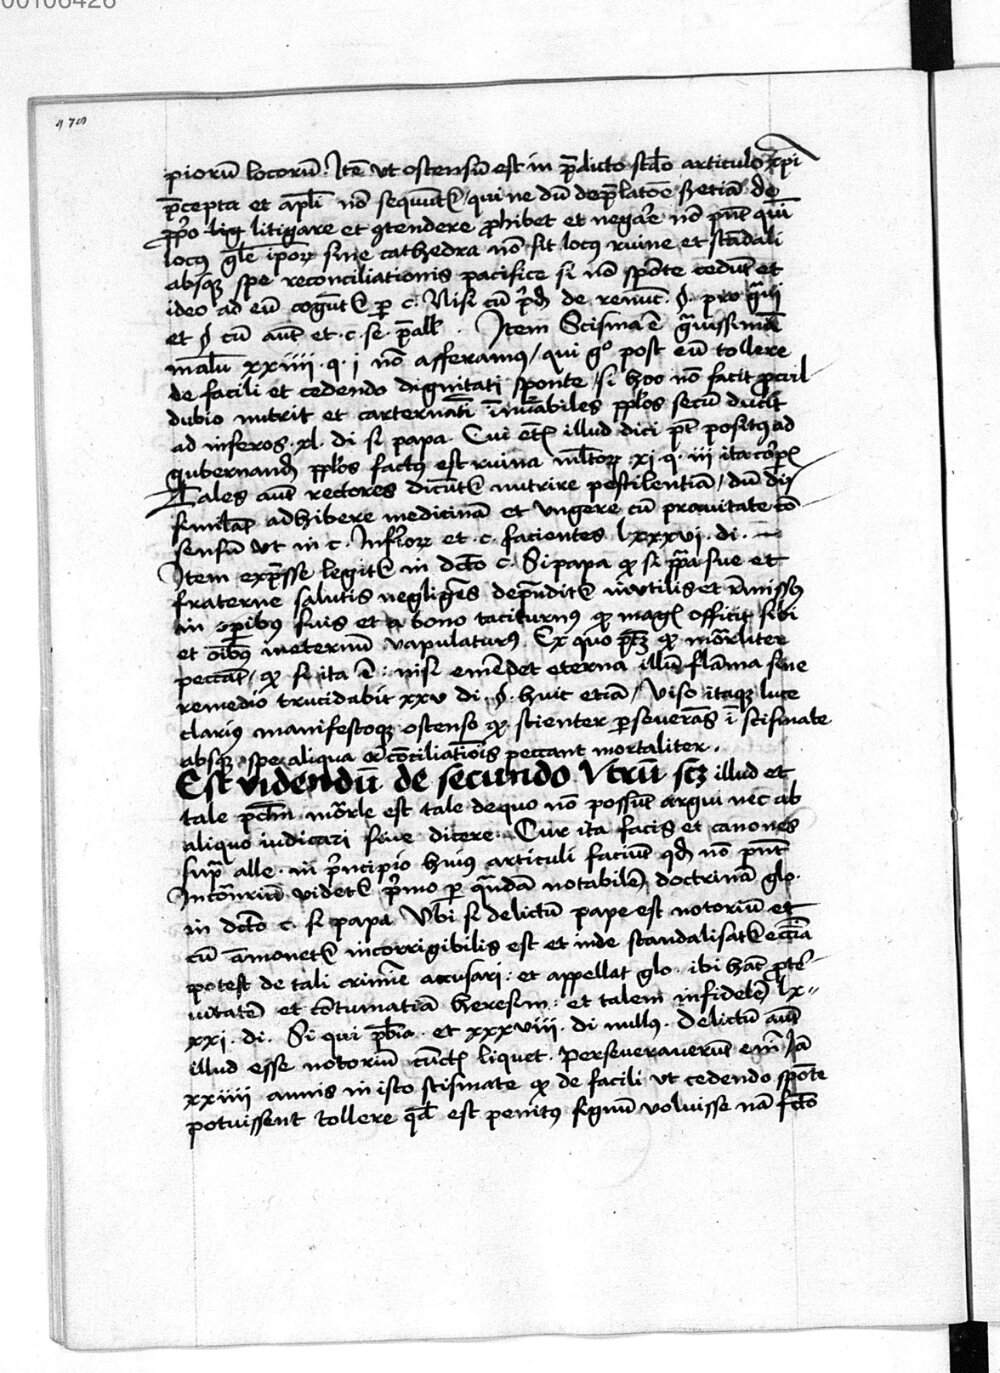 00106426
piorū locorū. Itē vt ostensū est in p̄dicto scd̄o articulo xp̄i
p̄cepta et apl̄i nō sequūtr / qui ne dū de p̄latōe sꝫ etiā de
pp̄o lig litigare et ꝯtendere ꝓhibet et negare nō pn̄t qui
locꝰ gl̄e ipoꝝ siue cathedra nō sit locꝰ ruine et scādali
absqꝫ spe reconciliationis pacifice si nō spōte cedūt et
ideo ad eū cogūtr ꝑ c. Nisi cū p̄dē de renūc. §. pro gͣui
et § cū aūt et .c. se. p̄all . Item Scisma ē gͣuissimū
malū xxiiii .q. i nō afferamꝰ / qui gͦ post eū tollere
de facili et cedendo dignitati sponte / si hoc nō facit ꝓcul
dubio nutrit et carternatī īnūabiles pplōs secū ducit
ad inferos .xl. di si papa. Cui etr illud dici pt̄ positꝰ ad
gubernandū pplōs factꝰ est ruina ml̄toꝝ xi .q. iii ita corpr
Tales aūt rectores dicūtr nutrire pestilentiā / dū dis
simulāt adhibere medicinā et vngere cū prauitate cō
sensū vt in c. Inferioꝝ et .c. facientes lxxxvi. di.
Item exp̄sse legitr in dc̄to c. Si papa ꝙ si p̄pa sue et
fraterne salutis negligēs dep̄nditr inutilis et rīmissꝰ
in oꝑibꝰ suis et a bono taciturnꝰ ꝙ magꝭ officit sibi
et oībꝰ ineternū vapulaturꝰ. Ex quo ptꝫ ꝙ mōrliter
peccāt / ꝙ si ita ē : nisi emēdet eterna illū flāma sine
remedio trucidabit xxv di .§. huic etiā / Viso itaqꝫ luce
clariꝰ manifestoqꝫ ostenso ꝙ scienter ꝑseuerās ī scismate
absqꝫ spe aliqua rͤcōciliatiōis peccant mortaliter.
Est videndū de secundo Vtrū scꝫ illud et
tale pc̄tm mōrle est tale de quo nō possūt argui nec ab
aliquo iudicari siue dicere. Cur ita facis et canones
supͣ alle. in p̄ncipio huius articuli faciūt qd̄ nō pn̄t
Incōtrariū videtr p̄mo ꝑ quādā notabilē doctrinā glo.
in dc̄to c. si papa Vbi si delictū pape est notoriū et
cū āmonetr incorrigibilis est et inde scandalisatr ecc̄ia
potest de tali crimīe accusari : et appellat glo. ibi hāc ꝑte
uitatē et cōtumatiā heresim : et talem infidelē lx
xxi. di. Si qui pbr̄i. et xxxviii. di nullꝰ. Delictū aūt
illud esse notoriū cūctꝭ liquet. Perseuerauerūt em̄ Iā
xxiiii annis in isto scismate ꝙ de facili vt cedendo spōte
potuissent tollere qd̄ est penitꝰ signū voluisse nā fc̄to